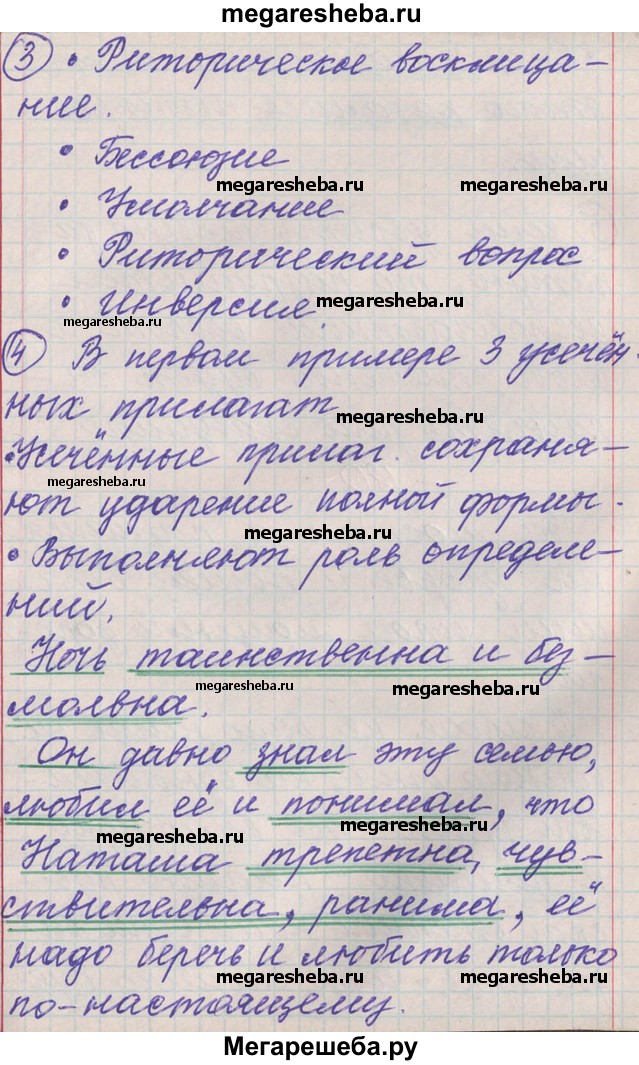 megaresheba.ru
③ • Риторическое восклица-
ние.
• Бессоюзие
megaresheba.ru megaresheba.ru
• Умолчание
• Риторический вопрос
• Инверсия.
megaresheba.ru
megaresheba.ru
④ В первом примере 3 усечён-
ных прилагат.
megaresheba.ru
• Усечённые прилаг. сохраня-
megaresheba.ru
ют ударение полной формы.
megaresheba.ru
• Выполняют роль определе-
ний.
Ночь таинственна и без-
megaresheba.ru megaresheba.ru
молвна.
Он давно знал эту семью,
любил её и понимал, что
megaresheba.ru megaresheba.ru
Наташа трепетна, чув-
ствительна, ранима, её
надо беречь и любить только
megaresheba.ru megaresheba.ru
по-настоящему.
Мегарешеба.ру